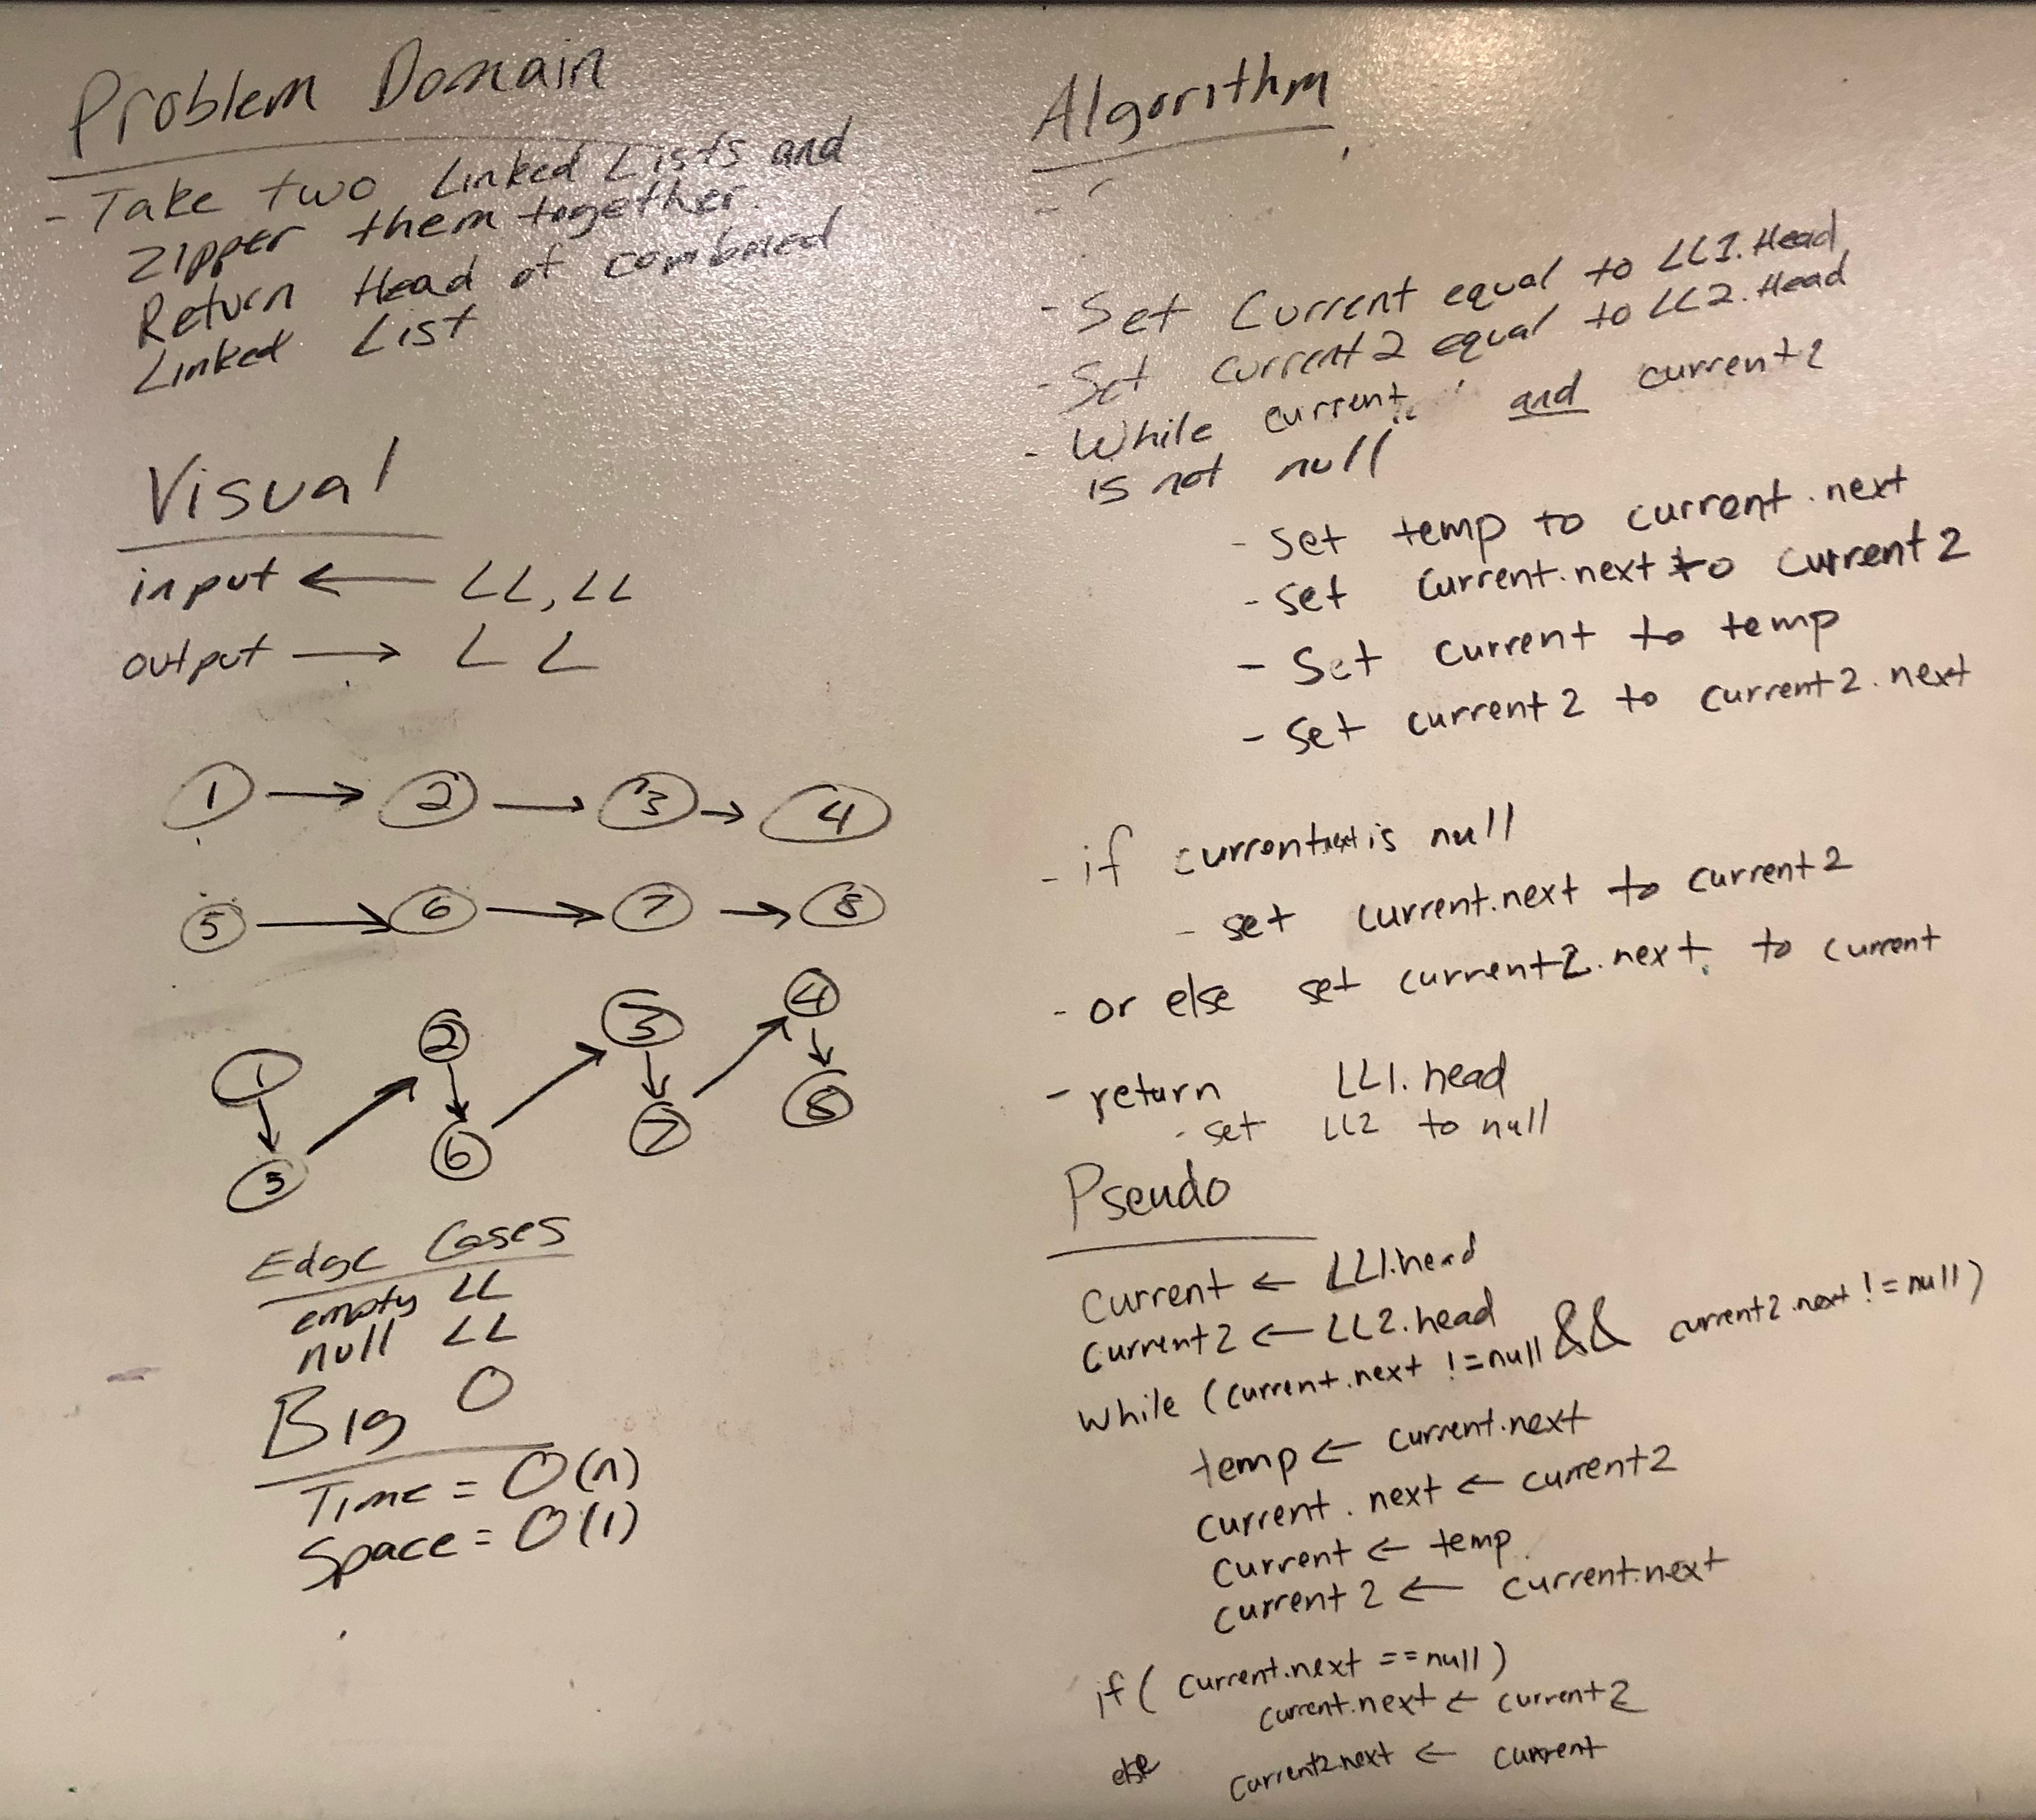 Problem Domain
- Take two Linked Lists and
Zipper them together.
Return Head of combined
Linked List
Visual
input ← LL, LL
output → LL
1 → 2 → 3 → 4
5 → 6 → 7 → 8
1 2 3 4
5 6 7 8
Edge Cases
empty LL
null LL
Big O
Time = O(n)
Space = O(1)
Algorithm
- Set Current equal to LL1.Head
- Set current2 equal to LL2.Head
- While current and current2
is not null
- set temp to current.next
- set current.next to current2
- Set current to temp
- set current2 to current2.next
- if current.next is null
- set current.next to current2
- or else set current2.next to current
- return LL1.head
- set LL2 to null
Pseudo
Current ← LL1.head
Current2 ← LL2.head
while (current.next != null && current2.next != null)
temp ← current.next
current.next ← current2
current ← temp
current2 ← current.next
if (current.next == null)
current.next ← current2
else current2.next ← current